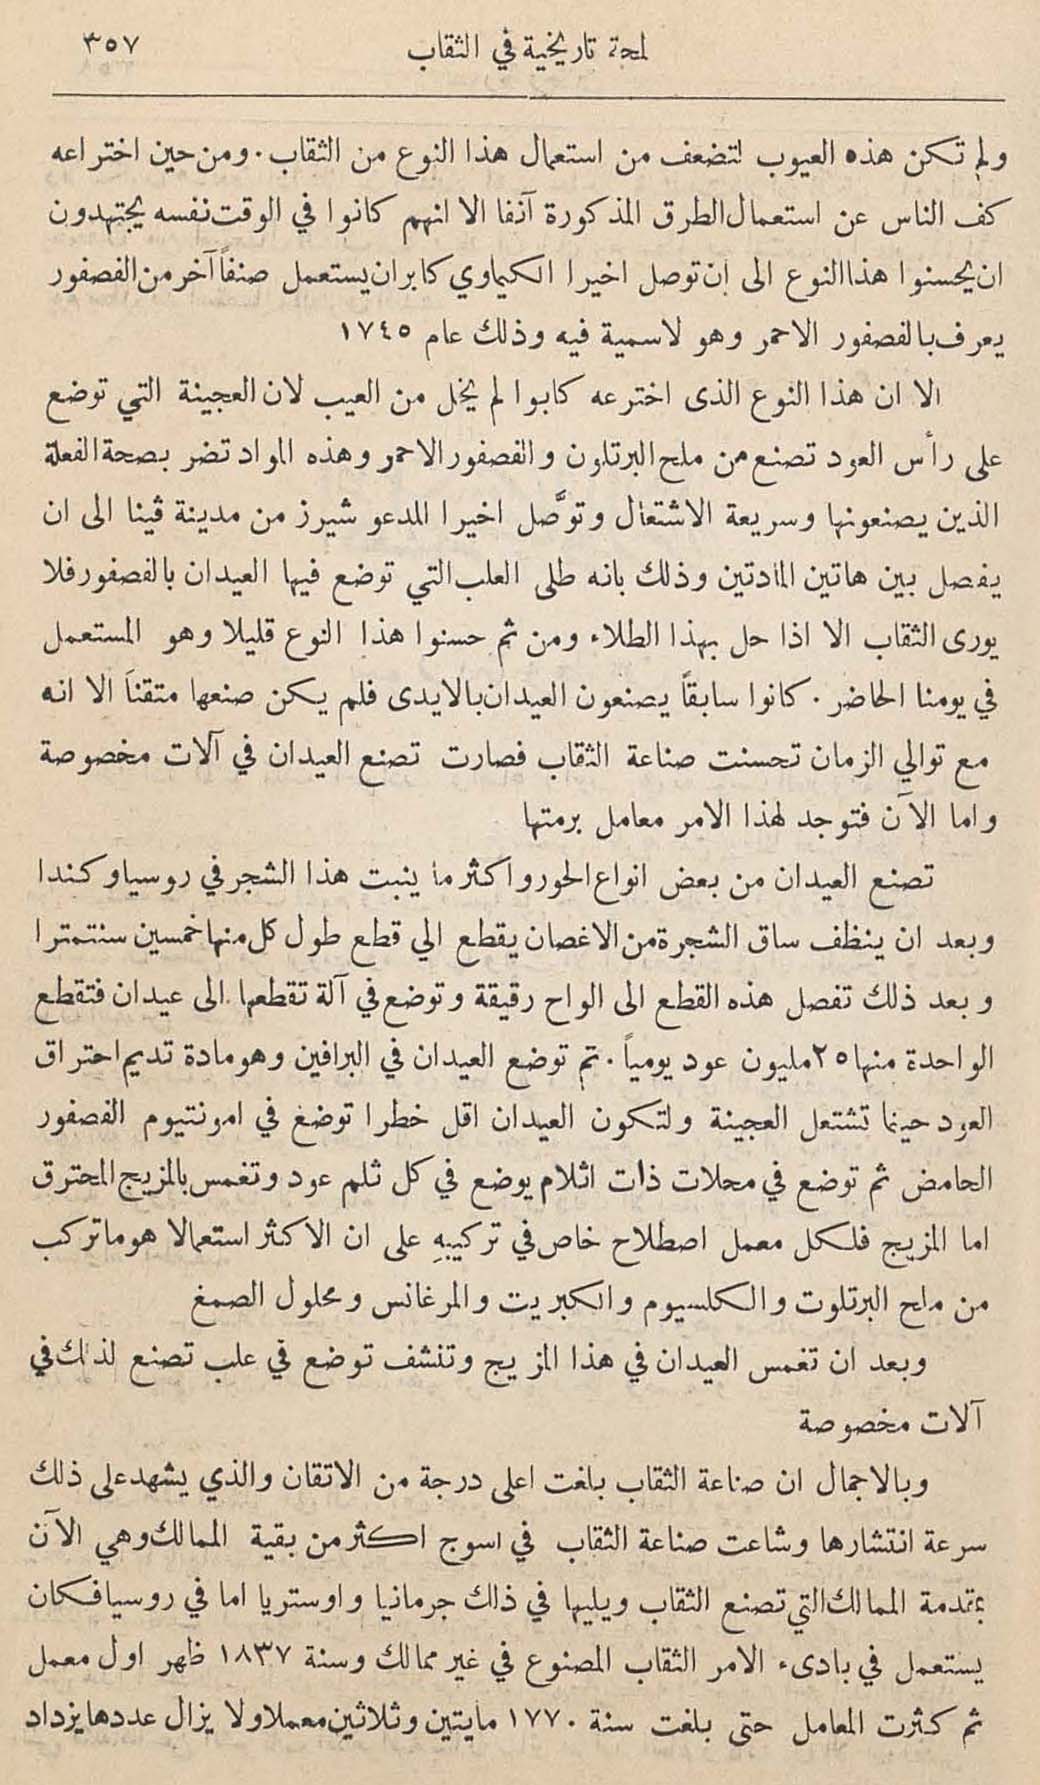 لمحة تاريخية في الثقاب ٣٥٧
ولم تكن هذه العيوب لتضعف من استعمال هذا النوع من الثقاب . ومن حين اختراعه
كف الناس عن استعمال الطرق المذكورة آنفا الا انهم كانوا في الوقت نفسه يجتهدون
ان يحسنوا هذا النوع الى ان توصل اخيرا الكيماوي كابر ان يستعمل صنفاً آخر من الفصفور
يعرف بالفصفور الاحمر وهو لا سمية فيه وذلك عام ١٧٤٥
الا ان هذا النوع الذى اخترعه كابوا لم يخل من العيب لان العجينة التي توضع
على رأس العود تصنع من ملح البرتلون والفصفور الاحمر وهذه المواد تضر بصحة الفعلة
الذين يصنعونها وسريعة الاشتعال وتوصَّل اخيرا المدعو شيرز من مدينة ڤينا الى ان
يفصل بين هاتين المادتين وذلك بانه طلى العلب التي توضع فيها العيدان بالفصفور فلا
يورى الثقاب الا اذا حل بهذا الطلاء ومن ثم حسنوا هذا النوع قليلا وهو المستعمل
في يومنا الحاضر . كانوا سابقاً يصنعون العيدان بالايدى فلم يكن صنعها متقناً الا انه
مع توالي الزمان تحسنت صناعة الثقاب فصارت تصنع العيدان في آلات مخصوصة
واما الآن فتوجد لهذا الامر معامل برمتها
تصنع العيدان من بعض انواع الحور واكثر ما ينبت هذا الشجر في روسيا وكندا
وبعد ان ينظف ساق الشجرة من الاغصان يقطع الي قطع طول كل منها خمسين سنتمترا
وبعد ذلك تفصل هذه القطع الى الواح رقيقة وتوضع في آلة تقطعها الى عيدان فتقطع
الواحدة منها ٢٥ مليون عود يومياً . ثم توضع العيدان في البرافين وهو مادة تديم احتراق
العود حينما تشتعل العجينة ولتكون العيدان اقل خطرا توضع في امونتيوم الفصفور
الحامض ثم توضع في محلات ذات اثلام يوضع في كل ثلم عود وتغمس بالمزيج المحترق
اما المزيج فلكل معمل اصطلاح خاص في تركيبهِ على ان الاكثر استعمالا هو ما تركب
من ملح البرتلوت والكلسيوم والكبريت والمرغانس ومحلول الصمغ
وبعد ان تغمس العيدان في هذا المزيج وتنشف توضع في علب تصنع لذلك في
آلات مخصوصة
وبالاجمال ان صناعة الثقاب بلغت اعلى درجة من الاتقان والذي يشهد على ذلك
سرعة انتشارها وشاعت صناعة الثقاب في اسوج اكثر من بقية الممالك وهي الآن
بمقدمة الممالك التي تصنع الثقاب ويليها في ذلك جرمانيا واوستريا اما في روسيا فكان
يستعمل في بادىء الامر الثقاب المصنوع في غير ممالك وسنة ١٨٣٧ ظهر اول معمل
ثم كثرت المعامل حتى بلغت سنة ١٧٧٠ مايتين وثلاثين معملا ولا يزال عددها يزداد